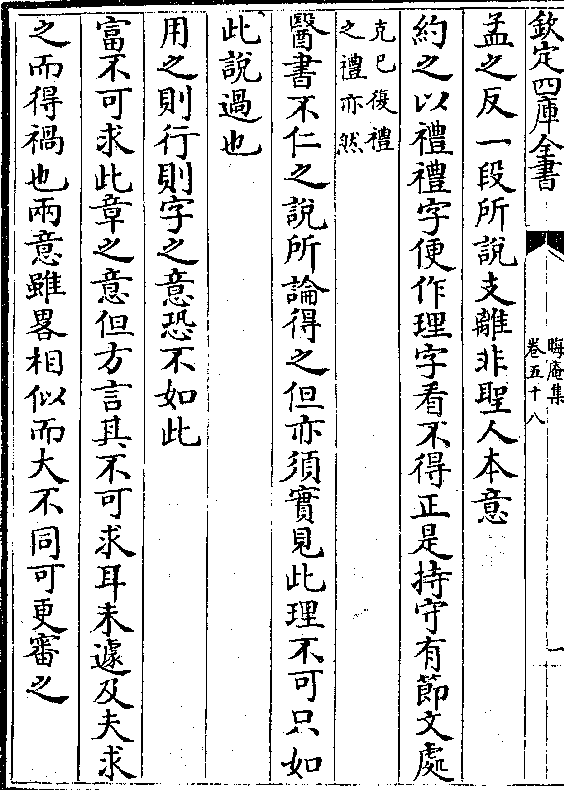 欽定四庫全書
晦庵集
卷五十八
一
孟之反一段所說支離非聖人本意
約之以禮禮字便作理字看不得正是持守有節文處
克己復禮
之禮亦然
醫書不仁之說所論得之但亦須實見此理不可只如
此說過也
用之則行則字之意恐不如此
富不可求此章之意但方言其不可求耳未遽及夫求
之而得禍也兩意雖畧相似而大不同可更審之